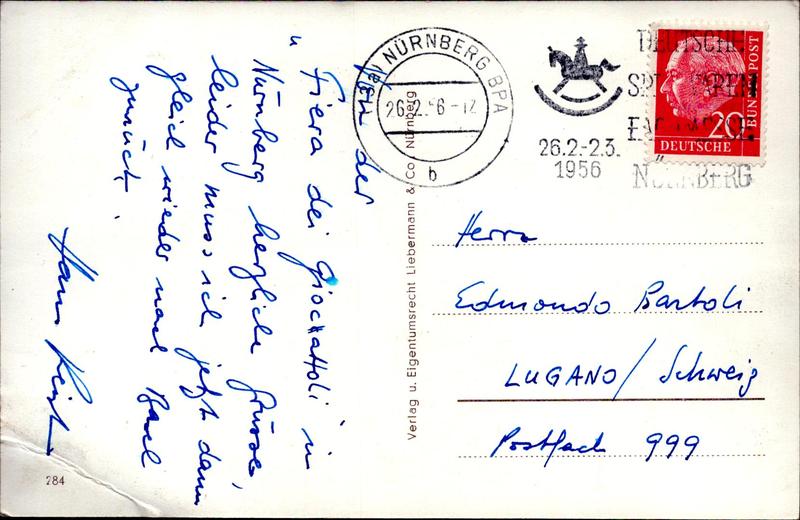 Von der
" Fiera dei Giocattoli in
Nürnberg herzliche Grüsse,
leider muss ich jetzt dann
gleich wieder nach Basel
zurück.
Hans
284
Verlag u. Eigentumsrecht Liebermann & Co., Nürnberg
(13a) NÜRNBERG BPA
26.2.56-12
b
26.2.-2.3.
1956
DEUTSCHE
NÜRNBERG
20
DEUTSCHE
BUNDESPOST
Herrn
Edmondo Bartoli
LUGANO / Schweiz
Postfach 999